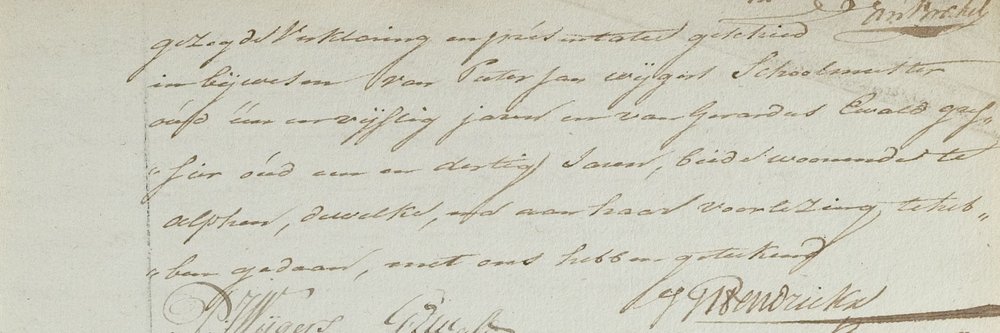 gezegde Verklaring en presentatie geschied
in bijwesen van Pieter Jan Wijgers Schoolmeester
óúd één en vijftig jaren en van Gerardus Ewald gref„
„fier óúd een en dertig Jaren, beide woonende te
alphen, dewelke, na aan haar voorlezing te heb„
„ben gedaan, met ons hebben getekend
P. J. Wijgers
J Hendricks